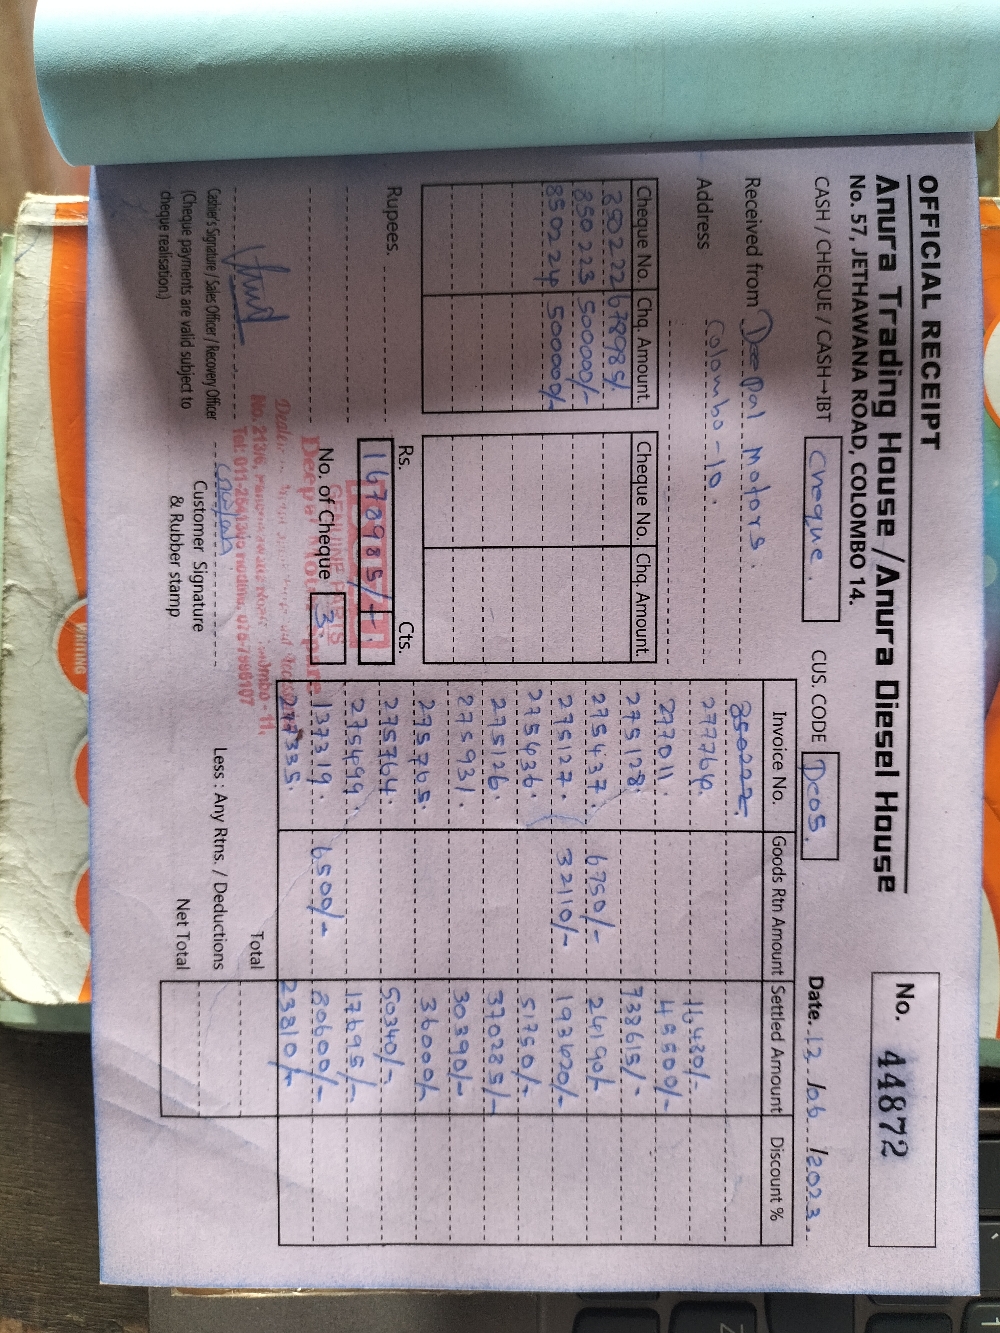 OFFICIAL RECEIPT
Anura Trading House / Anura Diesel House
No. 57, JETHAWANA ROAD, COLOMBO 14.
No. 44872
CASH / CHEQUE / CASH→IBT Cheque. CUS. CODE DC05. Date. 12/06/2023
Received from Deepal Motors.
Address Colombo-10.
Cheque No. Chq. Amount Cheque No. Chq. Amount.
850222 678985/-
850223 500000/-
850224 500000/-
Rupees.
Rs. Cts.
1678985/-
No. of Cheque 3.
Invoice No. Goods Rtn Amount Settled Amount Discount %
850222
277764. 16430/-
277011. 45500/-
275128. 733615/-
275437. 6750/- 24190/-
275127. 32110/- 193620/-
275436. 51750/-
275126. 370285/-
275931. 30390/-
275765. 36000/-
275764. 50340/-
275499. 17695/-
137319. 6500/- 80600/-
277335. 23810/-
Total
Less : Any Rtns. / Deductions
Net Total
GENUINE PARTS
Cashier's Signature / Sales Officer / Recovery Officer
(Cheque payments are valid subject to
cheque realisation.)
Customer Signature
& Rubber stamp
WRITING